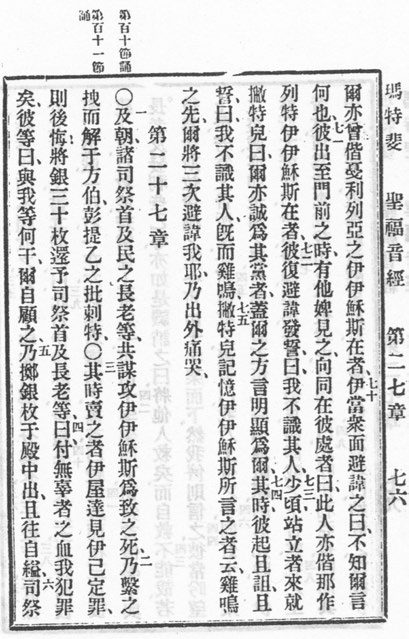 瑪特斐 聖福音經 第二七章 七六
爾亦曾偕戞利列亞之伊伊穌斯在者七十伊當衆面避諱之曰不知爾言
何也七一彼出至門前之時有他婢見之向同在彼處者曰此人亦偕那作
列特伊伊穌斯在者七二彼復避諱發誓曰我不識其人七三少頃站立者來就
撇特兒曰爾亦誠爲其黨者蓋爾之方言明顯爲爾七四其時彼起且詛且
誓曰我不識其人旣而雞鳴七五撇特兒記憶伊伊穌斯所言之者云雞鳴
之先爾將三次避諱我耶乃出外痛哭
第二十七章
第百十節誦
一〇及朝諸司祭首及民之長老等共謀攻伊伊穌斯爲致之死二乃繫之
第百十一節誦
拽而解于方伯彭提乙之批剌特三〇其時賣之者伊屋達見伊已定罪
則後悔將銀三十枚還予司祭首及長老等四曰付無辜者之血我犯罪
矣彼等曰與我等何干爾自顧之五乃擲銀枚于殿中出且往自縊六司祭